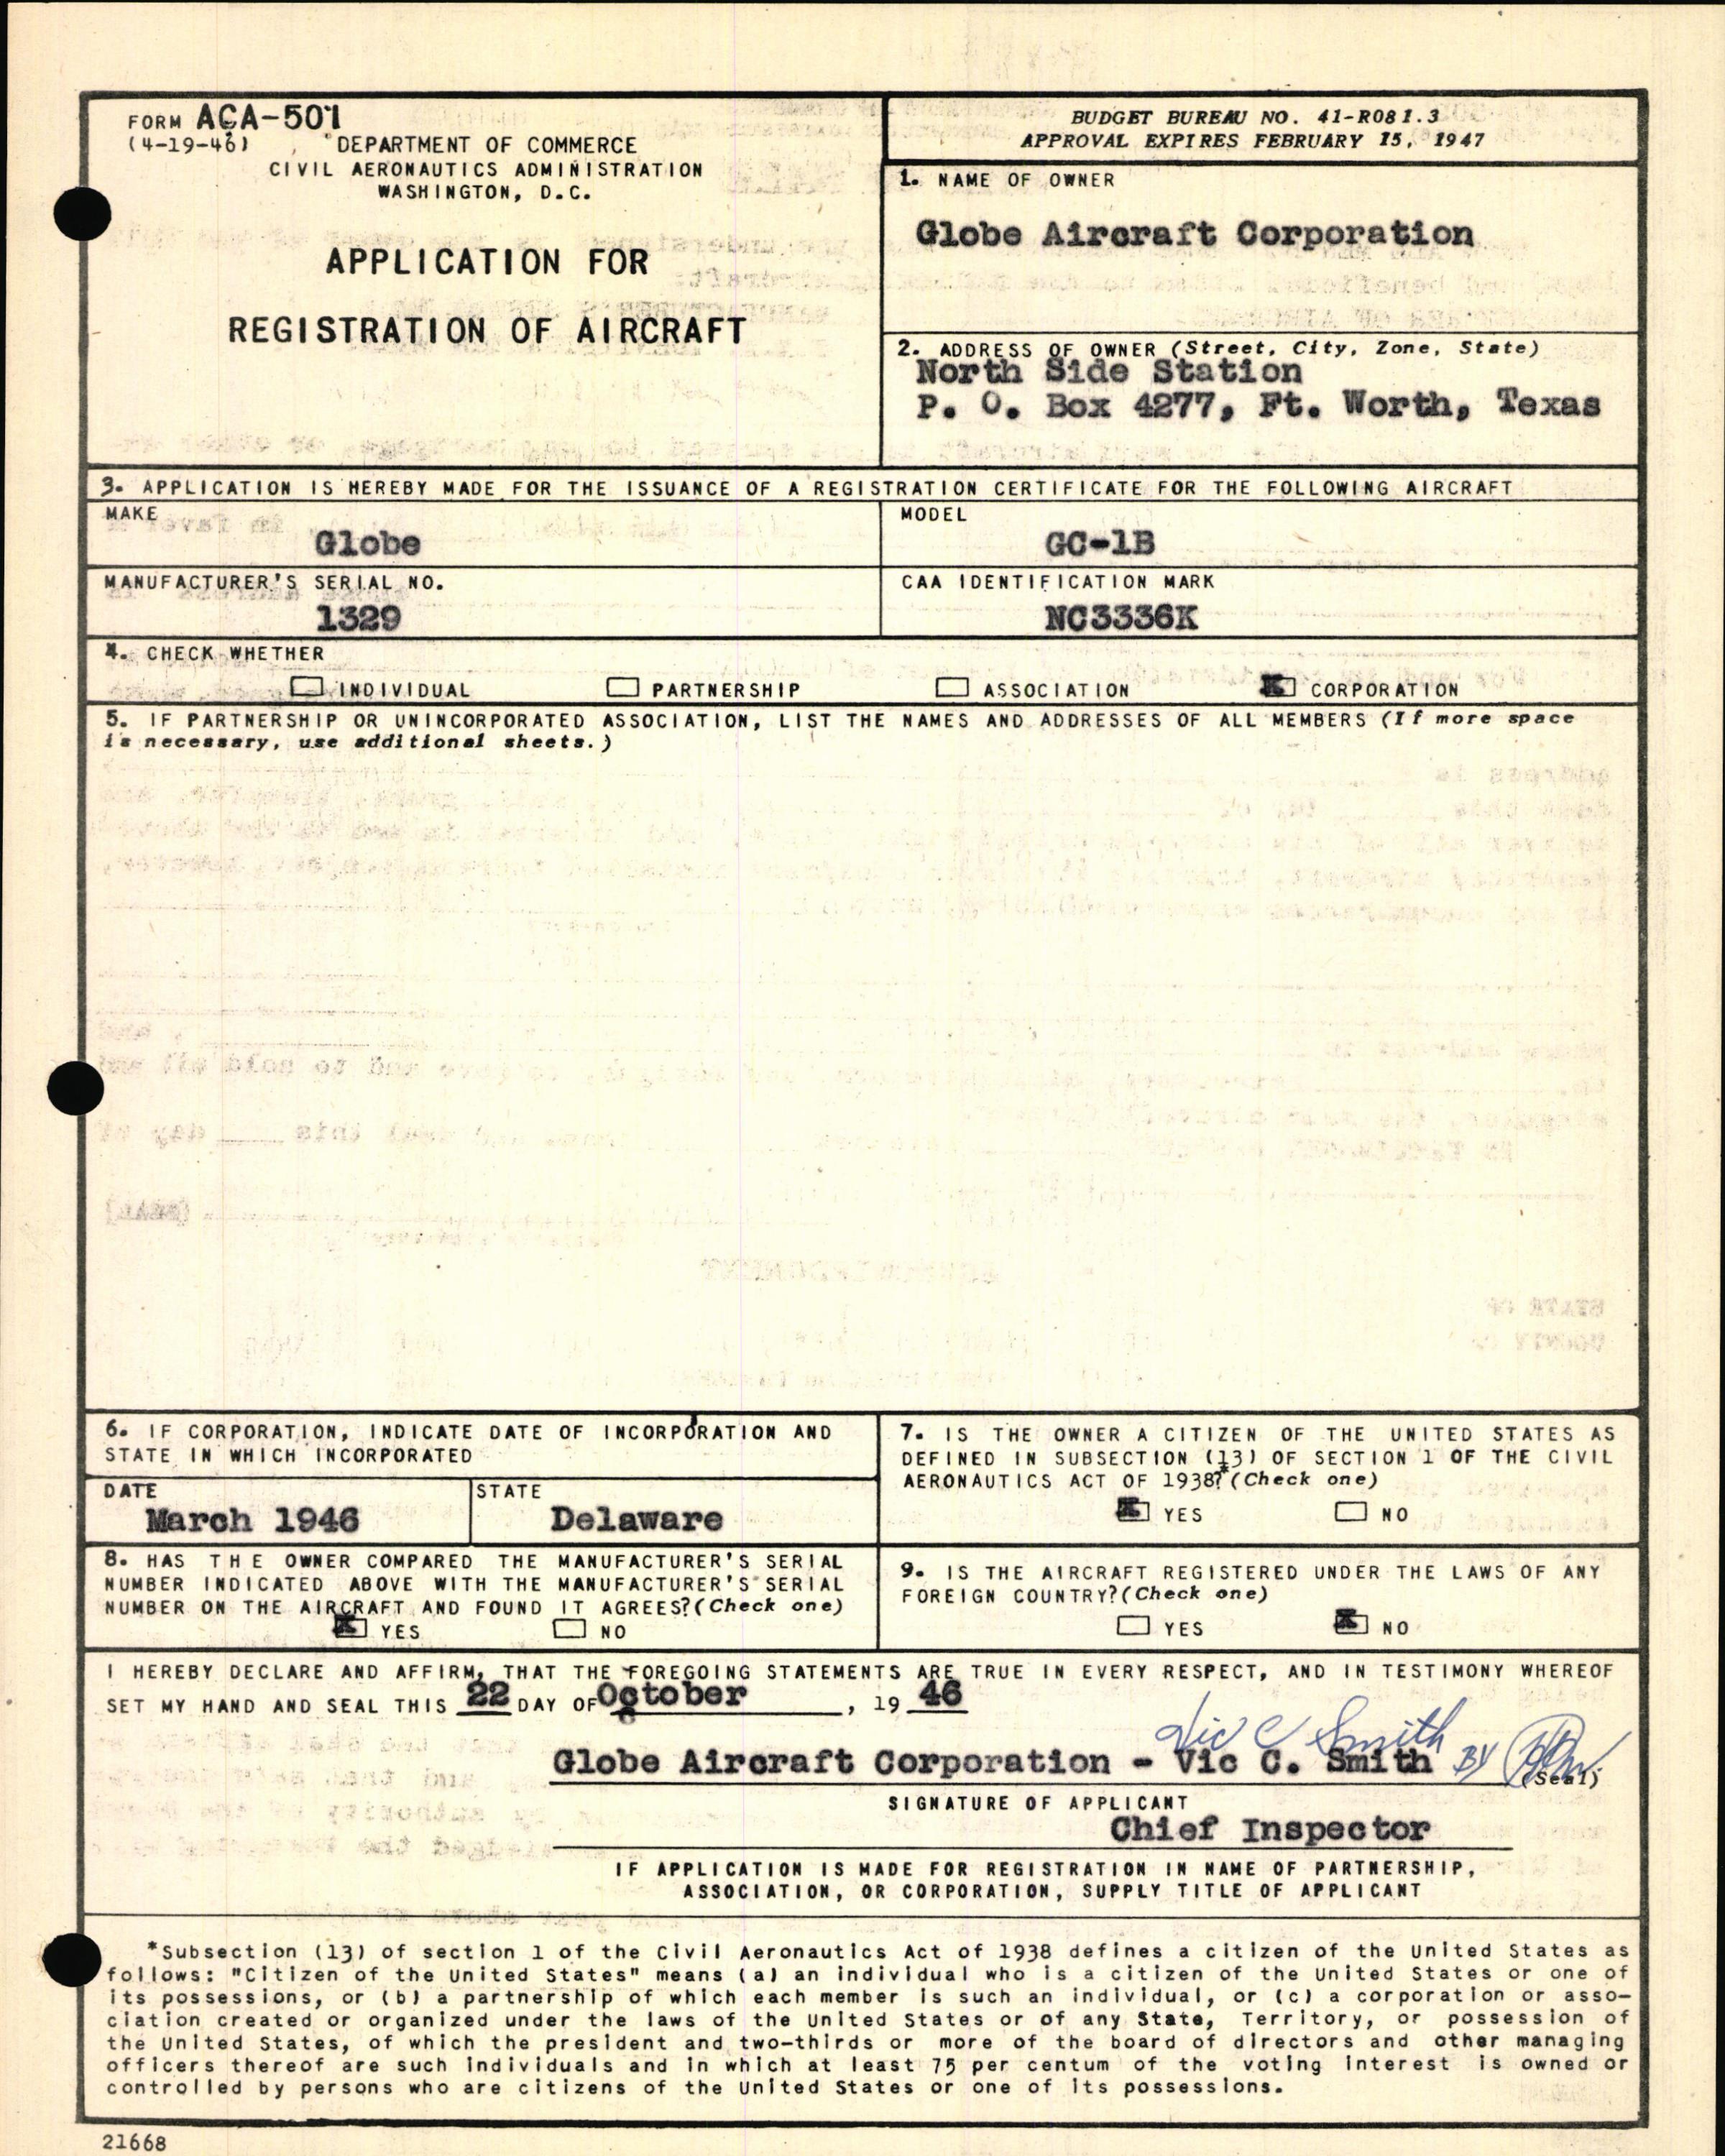 FORM ACA-501
(4-19-46)
DEPARTMENT OF COMMERCE
CIVIL AERONAUTICS ADMINISTRATION
WASHINGTON, D.C.
APPLICATION FOR
REGISTRATION OF AIRCRAFT
BUDGET BUREAU NO. 41-R081.3
APPROVAL EXPIRES FEBRUARY 15, 1947
1. NAME OF OWNER
Globe Aircraft Corporation
2. ADDRESS OF OWNER (Street, City, Zone, State)
North Side Station
P. O. Box 4277, Ft. Worth, Texas
3. APPLICATION IS HEREBY MADE FOR THE ISSUANCE OF A REGISTRATION CERTIFICATE FOR THE FOLLOWING AIRCRAFT
MAKE
Globe
MODEL
GC-1B
MANUFACTURER'S SERIAL NO.
1329
CAA IDENTIFICATION MARK
NC3336K
4. CHECK WHETHER
INDIVIDUAL PARTNERSHIP ASSOCIATION X CORPORATION
5. IF PARTNERSHIP OR UNINCORPORATED ASSOCIATION, LIST THE NAMES AND ADDRESSES OF ALL MEMBERS (If more space
is necessary, use additional sheets.)
6. IF CORPORATION, INDICATE DATE OF INCORPORATION AND
STATE IN WHICH INCORPORATED
DATE
March 1946
STATE
Delaware
7. IS THE OWNER A CITIZEN OF THE UNITED STATES AS
DEFINED IN SUBSECTION (13) OF SECTION 1 OF THE CIVIL
AERONAUTICS ACT OF 1938?* (Check one)
X YES NO
8. HAS THE OWNER COMPARED THE MANUFACTURER'S SERIAL
NUMBER INDICATED ABOVE WITH THE MANUFACTURER'S SERIAL
NUMBER ON THE AIRCRAFT AND FOUND IT AGREES? (Check one)
X YES NO
9. IS THE AIRCRAFT REGISTERED UNDER THE LAWS OF ANY
FOREIGN COUNTRY? (Check one)
YES X NO
I HEREBY DECLARE AND AFFIRM, THAT THE FOREGOING STATEMENTS ARE TRUE IN EVERY RESPECT, AND IN TESTIMONY WHEREOF
SET MY HAND AND SEAL THIS 22 DAY OF October, 19 46
Vic C Smith
Globe Aircraft Corporation - Vic C. Smith BY (Seal)
SIGNATURE OF APPLICANT
Chief Inspector
IF APPLICATION IS MADE FOR REGISTRATION IN NAME OF PARTNERSHIP,
ASSOCIATION, OR CORPORATION, SUPPLY TITLE OF APPLICANT
*Subsection (13) of section 1 of the Civil Aeronautics Act of 1938 defines a citizen of the United States as
follows: "Citizen of the United States" means (a) an individual who is a citizen of the United States or one of
its possessions, or (b) a partnership of which each member is such an individual, or (c) a corporation or asso-
ciation created or organized under the laws of the United States or of any State, Territory, or possession of
the United States, of which the president and two-thirds or more of the board of directors and other managing
officers thereof are such individuals and in which at least 75 per centum of the voting interest is owned or
controlled by persons who are citizens of the United States or one of its possessions.
21668